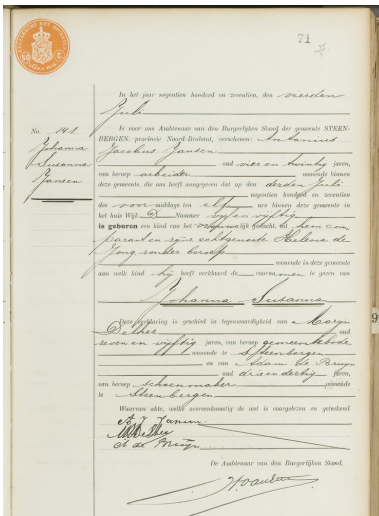 71
In het jaar negentien honderd en zeventien, den vierden
Juli
is voor ons Ambtenaar van den Burgerlijken Stand der gemeente STEEN-
BERGEN, provincie Noord-Brabant, verschenen: Antonius
Jacobus Jansen
oud vier en twintig jaren,
van beroep arbeider wonende binnen
deze gemeente, die ons heeft aangegeven dat op den derden Juli
negentien honderd en zeventien
des voor middags ten elf ure binnen deze gemeente in
het huis Wijk D Nummer vijf en vijftig
is geboren een kind van het vrouwelijk geslacht, uit hem com
parant en zijne echtgenoote Helena de
Jong, zonder beroep
wonende in deze gemeente
aan welk kind hij heeft verklaard de voornamen te geven van
Johanna - Susanna
Deze verklaring is geschied in tegenwoordigheid van Maryn
oud
zeven en vijftig jaren, van beroep gemeentebode
wonende te Steenbergen
en van Adam de Bruyn
oud drie en dertig jaren,
van beroep schoenmaker wonende
te Steenbergen
Waarvan akte, welke overeenkomstig de wet is voorgelezen en geteekend
A. J. Jansen
A de Bruyn
De Ambtenaar van den Burgerlijken Stand,
No. 141
Johanna
Susanna
Jansen